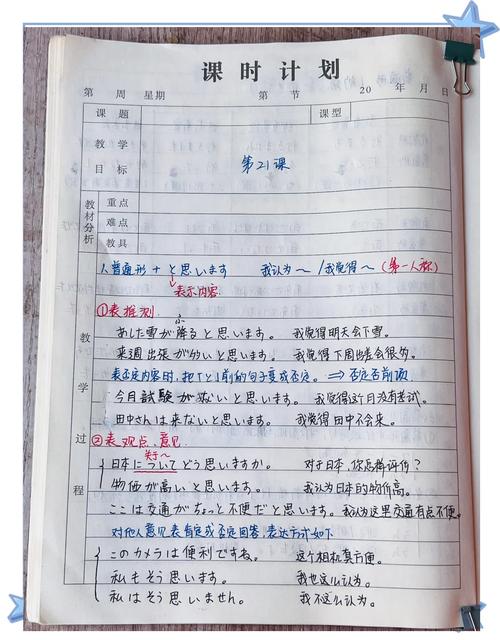 课时计划
第 周 星期 第 节 20 年 月 日
课题 课型
教学目标
第21课
教材分析
重点
难点
教具
教学过程
1.普通形 + と思います 我认为～ / 我觉得～ (第一人称)
表示内容
①表推测
ふ
あした雪が降ると思います。 我觉得明天会下雪。
来週出張が多いと思います。 我觉得下周出差会很多。
表否定内容时,把「と」前的句子变成否定。⇒ 否定否前项
今月試験がないと思います。 我觉得这个月没有考试。
田中さんは来ないと思います。 我觉得田中不会来。
②表观点、意见
关于～
日本についてどう思いますか。 对于日本,你怎样评价?
物価が高いと思います。 我认为日本的物价高。
ここは交通がちょっと不便だと思います。我认为这里交通有点不便。
对他人意见表肯定或否定回答,表达方式如下
このカメラは便利ですね。 这个相机真方便。
私もそう思います。 我也这么认为。
私はそう思いません。 我不这么认为。